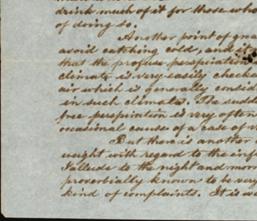 drink much of it for those who
of doing so.
Another point of grea
avoid catching cold, and it
that the profuse perspiration
climate is very easily checked
air which is generally
in such climates. The sudde
free perspiration is very often
occasional cause of a case of
But there is another
weight with regard to the
I allude to the night and mor
proverbially known to be very
kind of complaints. It is